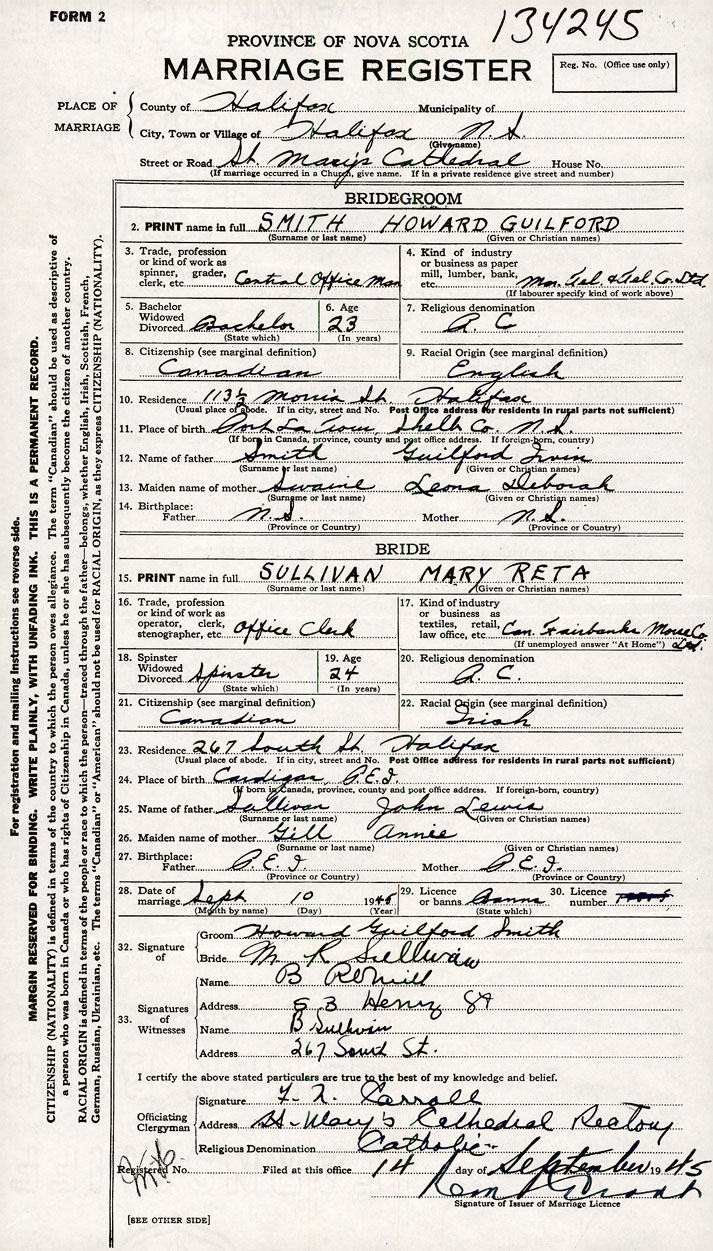 FORM 2
134245
PROVINCE OF NOVA SCOTIA
MARRIAGE REGISTER
Reg. No. (Office use only)
PLACE OF MARRIAGE
County of Halifax Municipality of
City, Town or Village of Halifax N.S.
(Give name)
Street or Road St. Mary's Cathedral House No.
(If marriage occurred in a Church, give name. If in a private residence give street and number)
BRIDEGROOM
2. PRINT name in full SMITH HOWARD GUILFORD
(Surname or last name) (Given or Christian names)
3. Trade, profession or kind of work as spinner, grader, clerk, etc. Central Office Man
4. Kind of industry or business as paper mill, lumber, bank, etc. Mar. Tel. & Tel. Co. Ltd.
(If labourer specify kind of work above)
5. Bachelor Widowed Divorced Bachelor
(State which)
6. Age 23
(In years)
7. Religious denomination R. C
8. Citizenship (see marginal definition) Canadian
9. Racial Origin (see marginal definition) English
10. Residence 113 1/2 Morris St. Halifax
(Usual place of abode. If in city, street and No. Post Office address for residents in rural parts not sufficient)
11. Place of birth Port La Tour Shelb Co. N.S.
(If born in Canada, province, county and post office address. If foreign-born, country)
12. Name of father Smith Guilford Irvin
(Surname or last name) (Given or Christian names)
13. Maiden name of mother Swaine Leona Deborah
(Surname or last name) (Given or Christian names)
14. Birthplace: Father N.S. Mother N.S.
(Province or Country) (Province or Country)
BRIDE
15. PRINT name in full SULLIVAN MARY RETA
(Surname or last name) (Given or Christian names)
16. Trade, profession or kind of work as operator, clerk, stenographer, etc. Office Clerk
17. Kind of industry or business as textiles, retail, law office, etc. Can. Fairbanks Morse Co. Ltd.
(If unemployed answer "At Home")
18. Spinster Widowed Divorced Spinster
(State which)
19. Age 24
(In years)
20. Religious denomination R. C.
21. Citizenship (see marginal definition) Canadian
22. Racial Origin (see marginal definition) Irish
23. Residence 267 South St. Halifax
(Usual place of abode. If in city, street and No. Post Office address for residents in rural parts not sufficient)
24. Place of birth Cardigan P.E.I.
(If born in Canada, province, county and post office address. If foreign-born, country)
25. Name of father Sullivan John Lewis
(Surname or last name) (Given or Christian names)
26. Maiden name of mother Gill Annie
(Surname or last name) (Given or Christian names)
27. Birthplace: Father P.E.I. Mother P.E.I.
(Province or Country) (Province or Country)
28. Date of marriage Sept 10 1945
(Month by name) (Day) (Year)
29. Licence or banns Banns
(State which)
30. Licence number
32. Signature of
Groom Howard Guilford Smith
Bride M R Sullivan
33. Signatures of Witnesses
Name B
Address 53 Henry St
Name B Sullivan
Address 267 South St.
I certify the above stated particulars are true to the best of my knowledge and belief.
Officiating Clergyman
Signature Carroll
Address St. Mary's Cathedral Rectory
Religious Denomination Catholic
Registered No. Filed at this office 14 day of September 1945
Signature of Issuer of Marriage Licence
[SEE OTHER SIDE]
For registration and mailing instructions see reverse side.
MARGIN RESERVED FOR BINDING. WRITE PLAINLY, WITH UNFADING INK. THIS IS A PERMANENT RECORD.
CITIZENSHIP (NATIONALITY) is defined in terms of the country to which the person owes allegiance. The term "Canadian" should be used as descriptive of
a person who was born in Canada or who has rights of Citizenship in Canada, unless he or she has subsequently become the citizen of another country.
RACIAL ORIGIN is defined in terms of the people or race to which the person—traced through the father—belongs, whether English, Irish, Scottish, French,
German, Russian, Ukrainian, etc. The terms "Canadian" or "American" should not be used for RACIAL ORIGIN, as they express CITIZENSHIP (NATIONALITY).